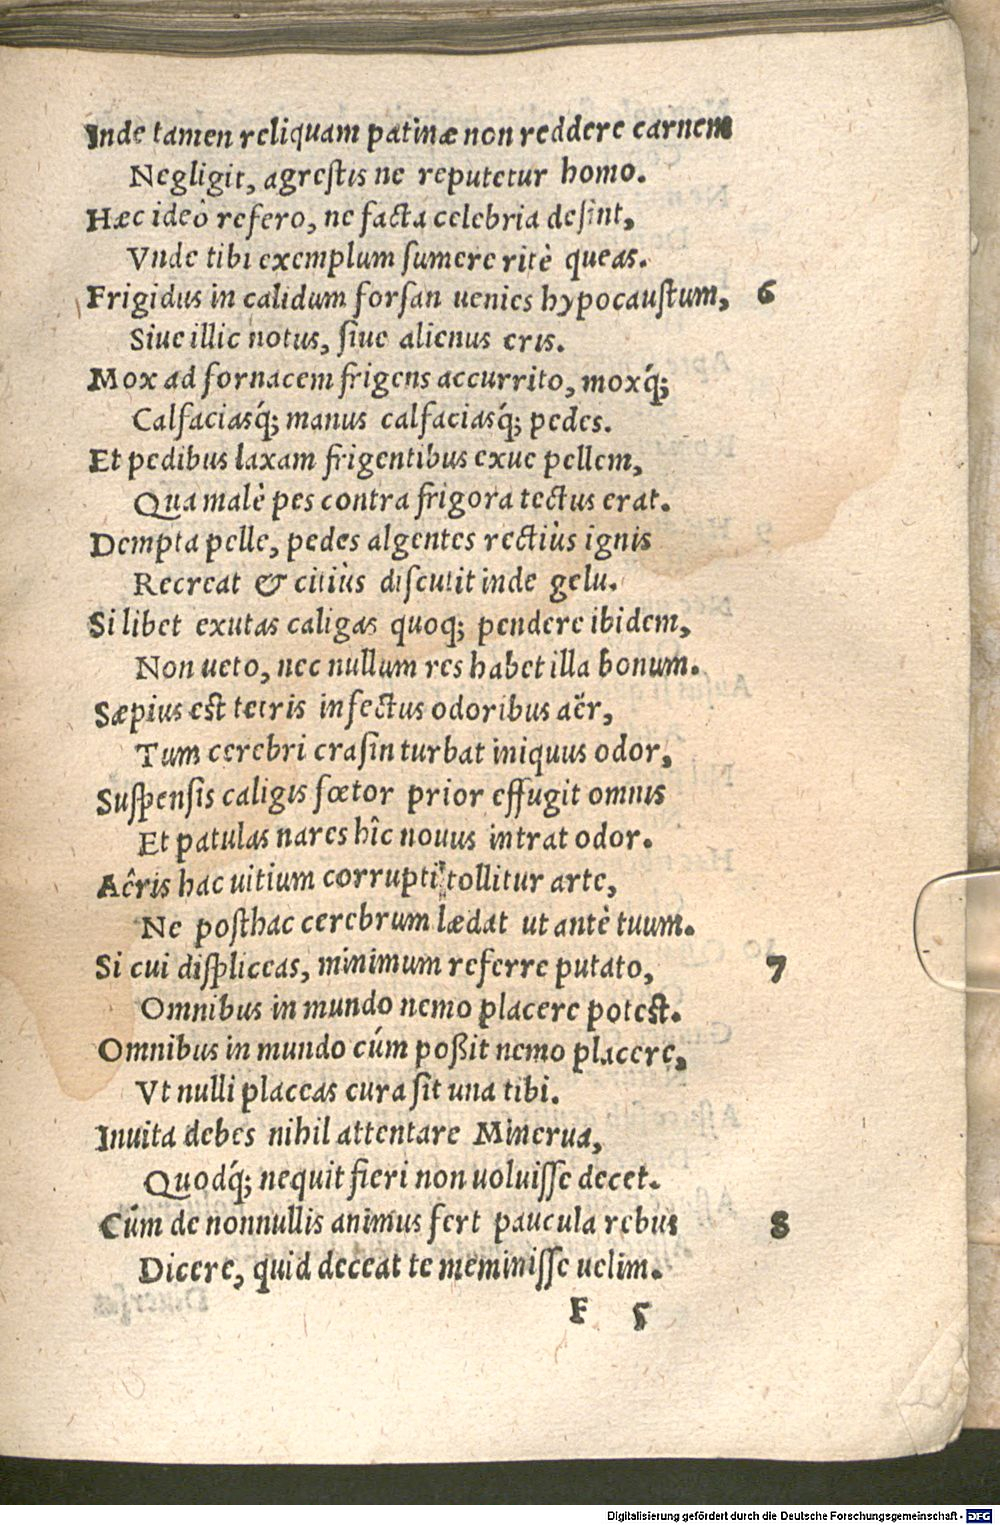 Inde tamen reliquam patinæ non reddere carnem
Negligit, agrestis ne reputetur homo.
Hæc ideò refero, ne facta celebria desint,
Vnde tibi exemplum sumere ritè queas.
Frigidus in calidum forsan uenies hypocaustum, 6
Siue illic notus, siue alienus eris.
Mox ad fornacem frigens accurrito, moxq́;
Calfaciasq́; manus calfaciasq́; pedes.
Et pedibus laxam frigentibus exue pellem,
Qua malè pes contra frigora tectus erat.
Dempta pelle, pedes algentes rectiùs ignis
Recreat & citiùs discutit inde gelu.
Si libet exutas caligas quoq; pendere ibidem,
Non ueto, nec nullum res habet illa bonum.
Sæpius est tetris infectus odoribus aër,
Tum cerebri crasin turbat iniquus odor,
Suspensis caligis fœtor prior effugit omnis
Et patulas nares hîc nouus intrat odor.
Aêris hac uitium corrupti tollitur arte,
Ne posthac cerebrum lædat ut antè tuum.
Si cui displiceas, minimum referre putato, 7
Omnibus in mundo nemo placere potest.
Omnibus in mundo cúm poßit nemo placere,
Vt nulli placeas cura sit una tibi.
Inuita debes nihil attentare Minerua,
Quodq́; nequit fieri non uoluisse decet.
Cúm de nonnullis animus fert paucula rebus 8
Dicere, quid deceat te meminisse uelim.
F 5
Digitalisierung gefördert durch die Deutsche Forschungsgemeinschaft - DFG